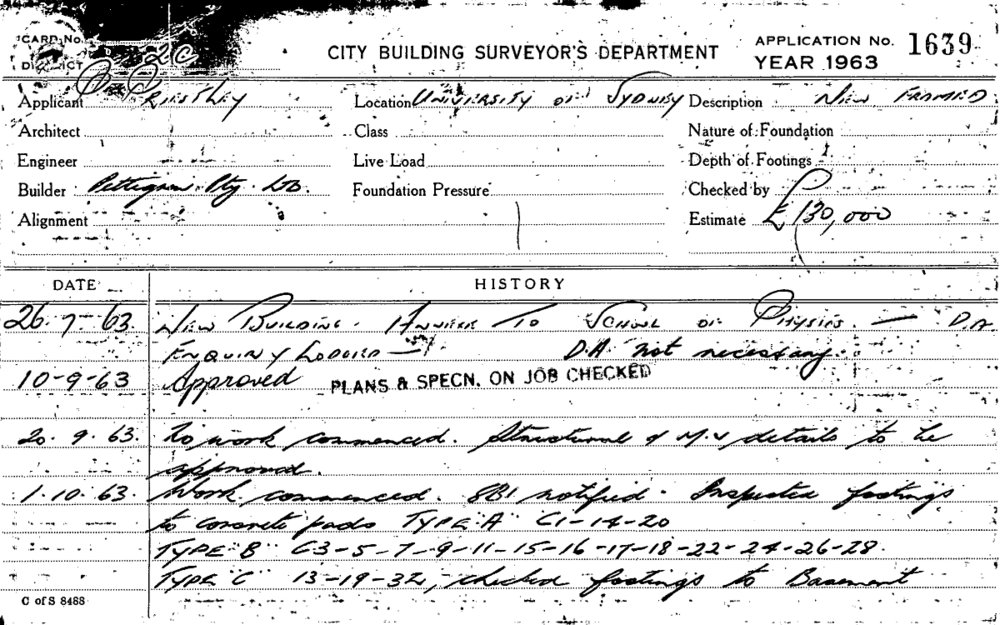 CARD No.
CITY BUILDING SURVEYOR'S DEPARTMENT
APPLICATION No. 1639
DISTRICT
YEAR 1963
Applicant Priestley Location University of Sydney Description New Framed
Architect Class Nature of Foundation
Engineer Live Load Depth of Footings
Builder Pettigrew Pty. Ltd. Foundation Pressure Checked by
Alignment Estimate £130,000
DATE HISTORY
26-7-63 New Building. Annexe to School of Physics. — D.A.
Enquiry Lodged — D.A. not necessary.
10-9-63 Approved PLANS & SPECN. ON JOB CHECKED
20.9.63. No work commenced. Structural & M.V details to be
approved.
1.10.63. Work commenced. SBI notified. Inspected footings
to concrete pads TYPE "A" C1-14-20
TYPE "B" C3-5-7-9-11-15-16-17-18-22-24-26-28.
TYPE "C" 13-19-32, checked footings to Basement
C of S 8488